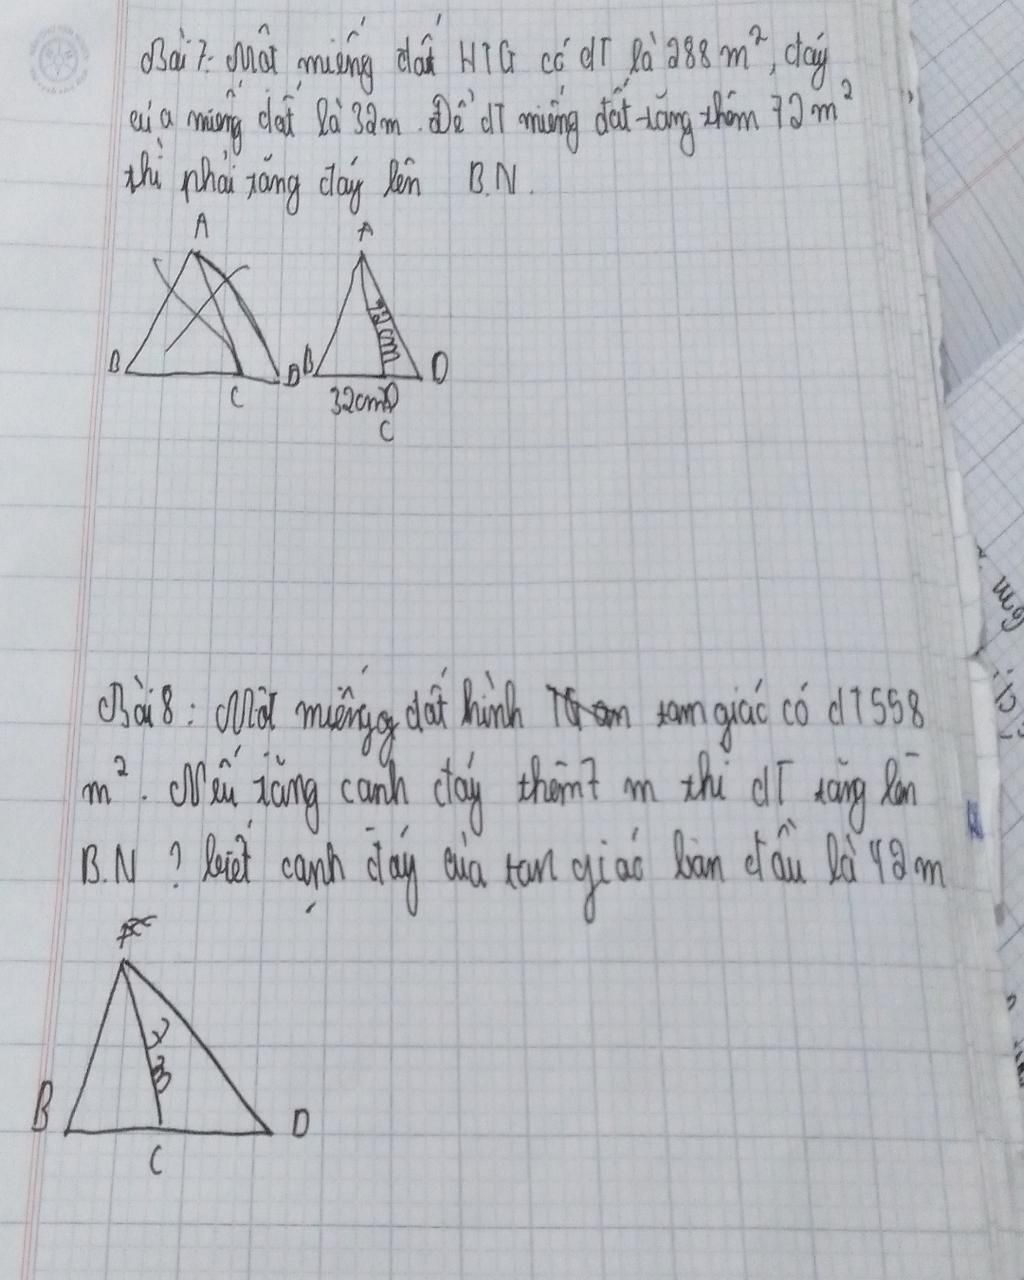 Bài 7: Một miếng đất HTG có dT là 288 m², đáy
của miếng đất là 32m. Để dT miếng đất tăng thêm 72m²
thì phải tăng đáy lên B.N.
A A
72cm
B D B D
32cm
C C
Bài 8: Một miếng đất hình tam giác có dT 558
m². Nếu tăng cạnh đáy thêm 7 m thì dT tăng lên
B.N? biết cạnh đáy của tan giác ban đầu là 42m
B D
C